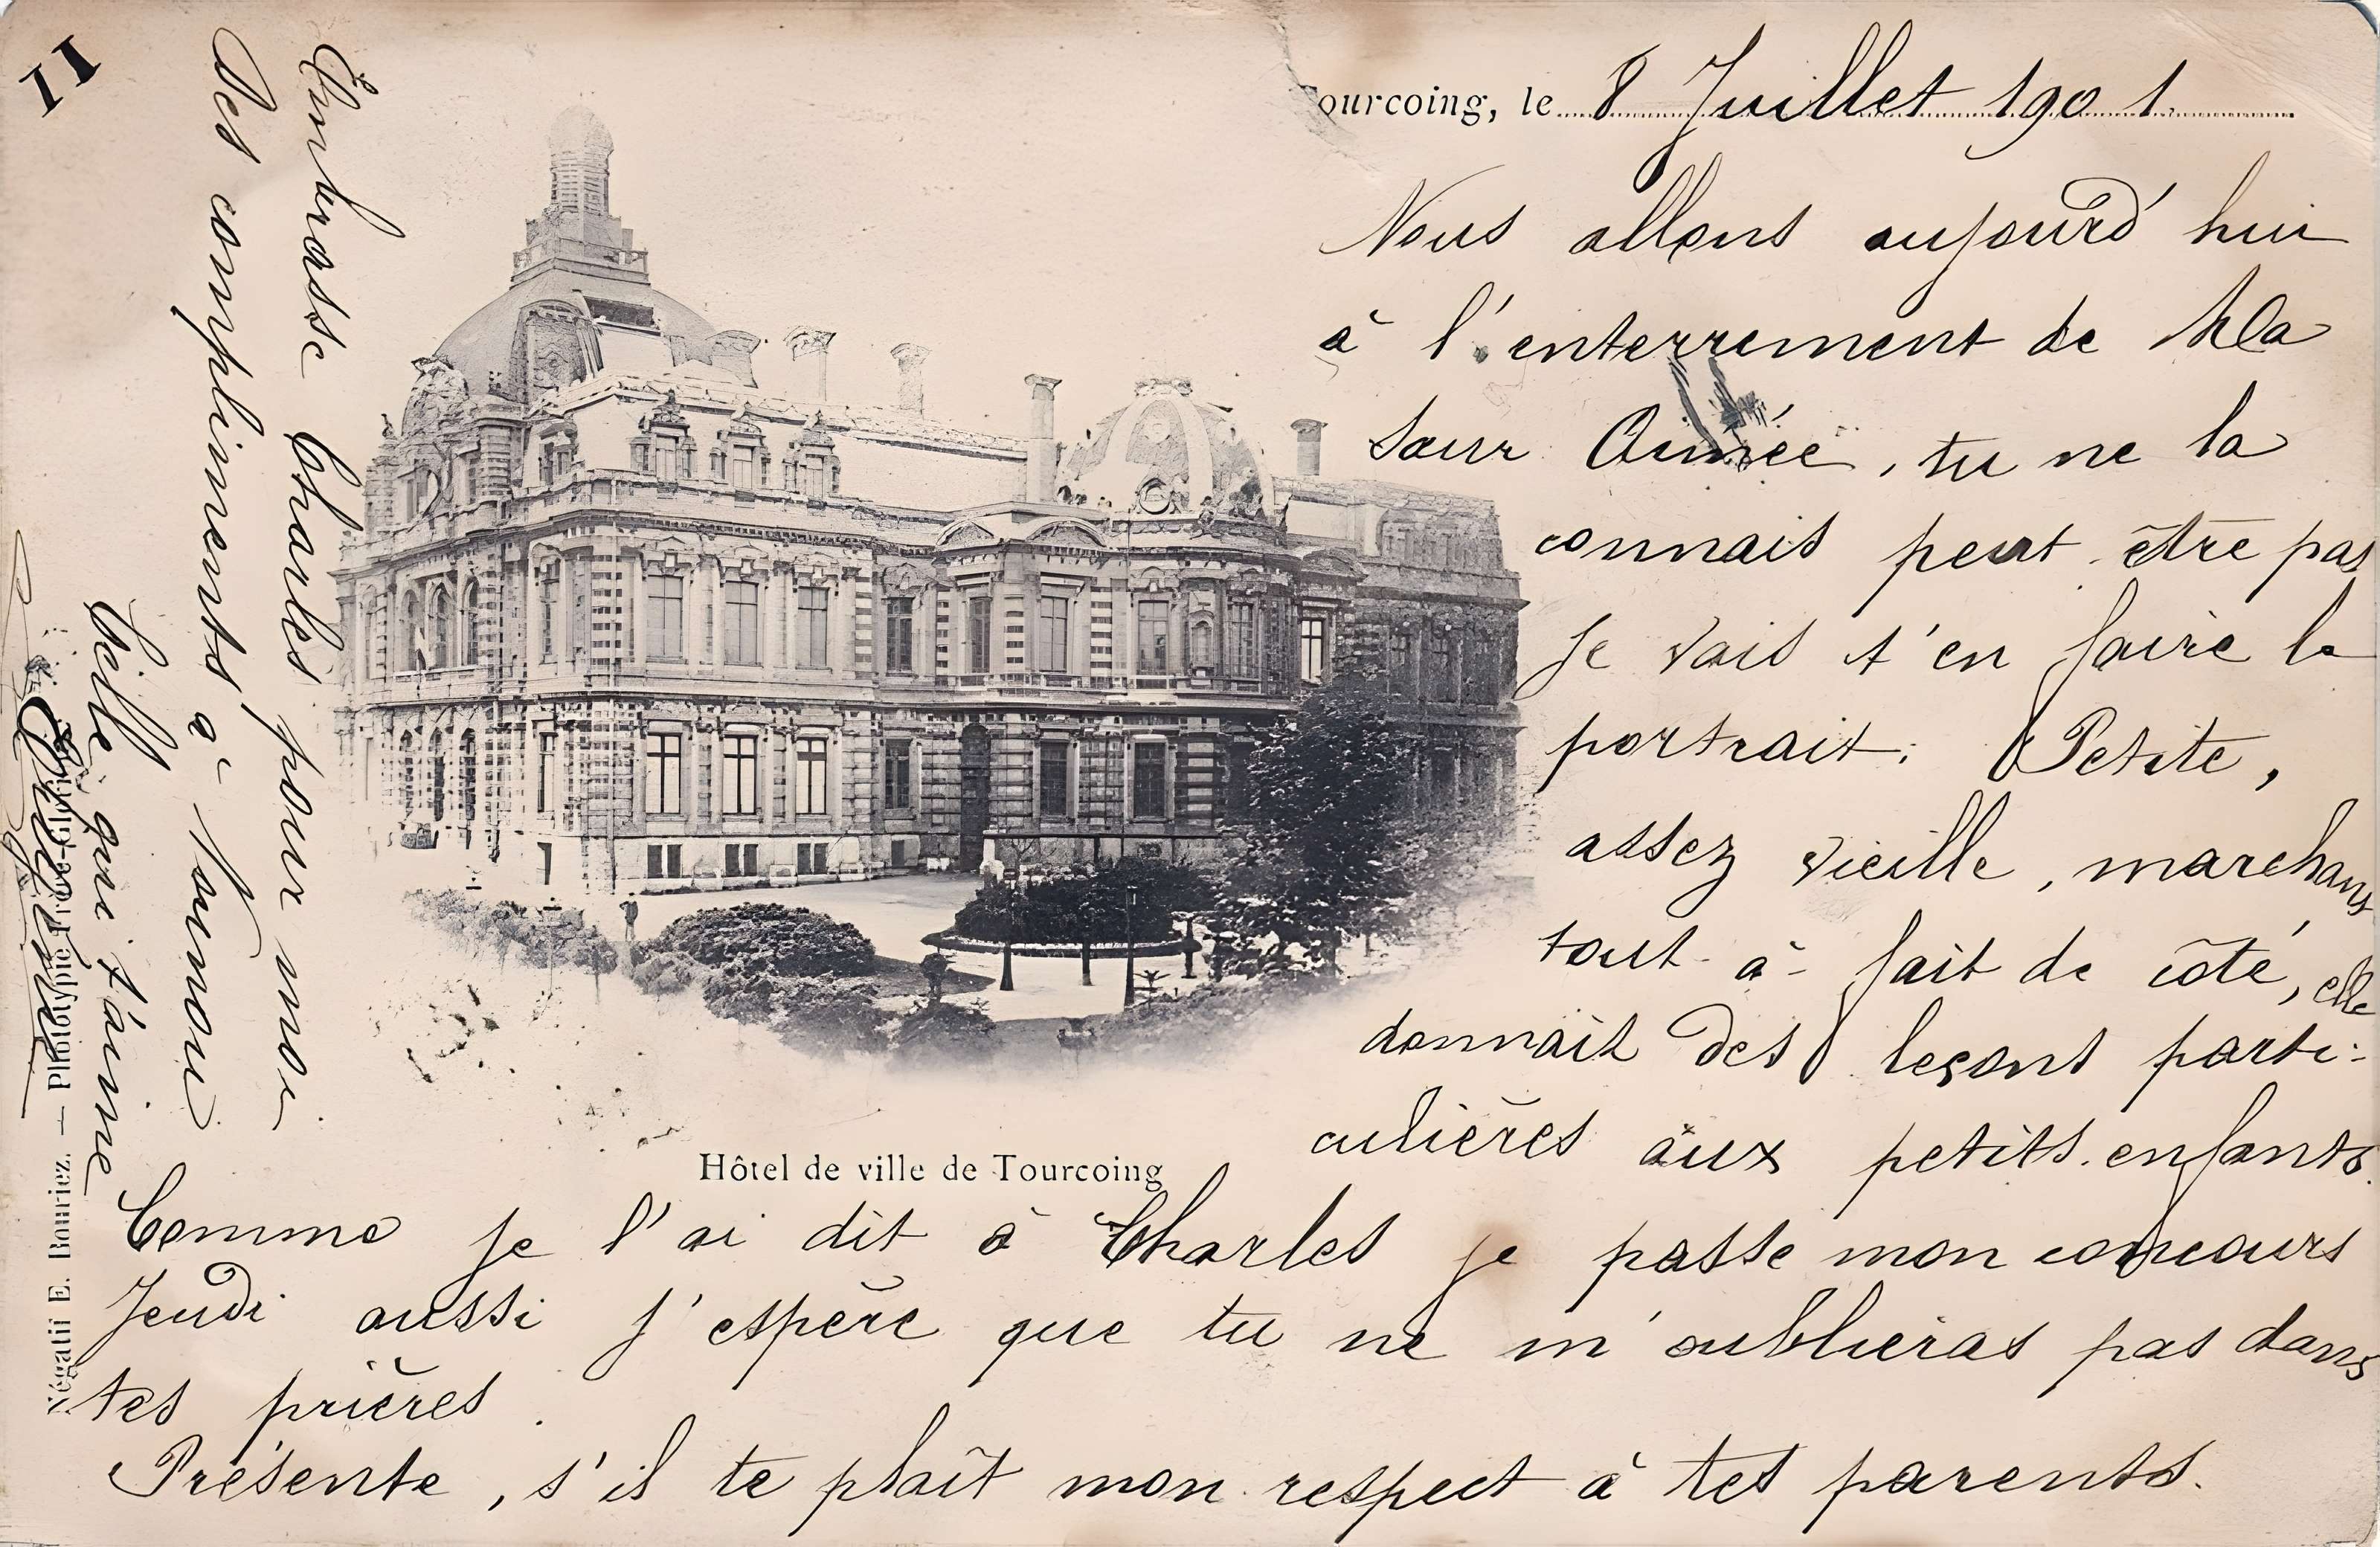 11
Tourcoing, le 8 Juillet 1901.
Nous allons aujourd'hui
à l'enterrement de Ma
sœur Aimée, tu ne la
connais peut-être pas
je vais t'en faire le
portrait: Petite,
assez vieille, marchant
tout-à-fait de côté, elle
donnait des leçons parti-
culières aux petits enfants.
Hôtel de ville de Tourcoing
Comme je l'ai dit à Charles je passe mon concours
Jeudi aussi j'espère que tu ne m'oublieras pas dans
tes prières.
Présente, s'il te plaît mon respect à tes parents.
Embrasse Charles pour moi
Des compliments à
qui t'aime
Négatif E. Bouriez. — Phototypie